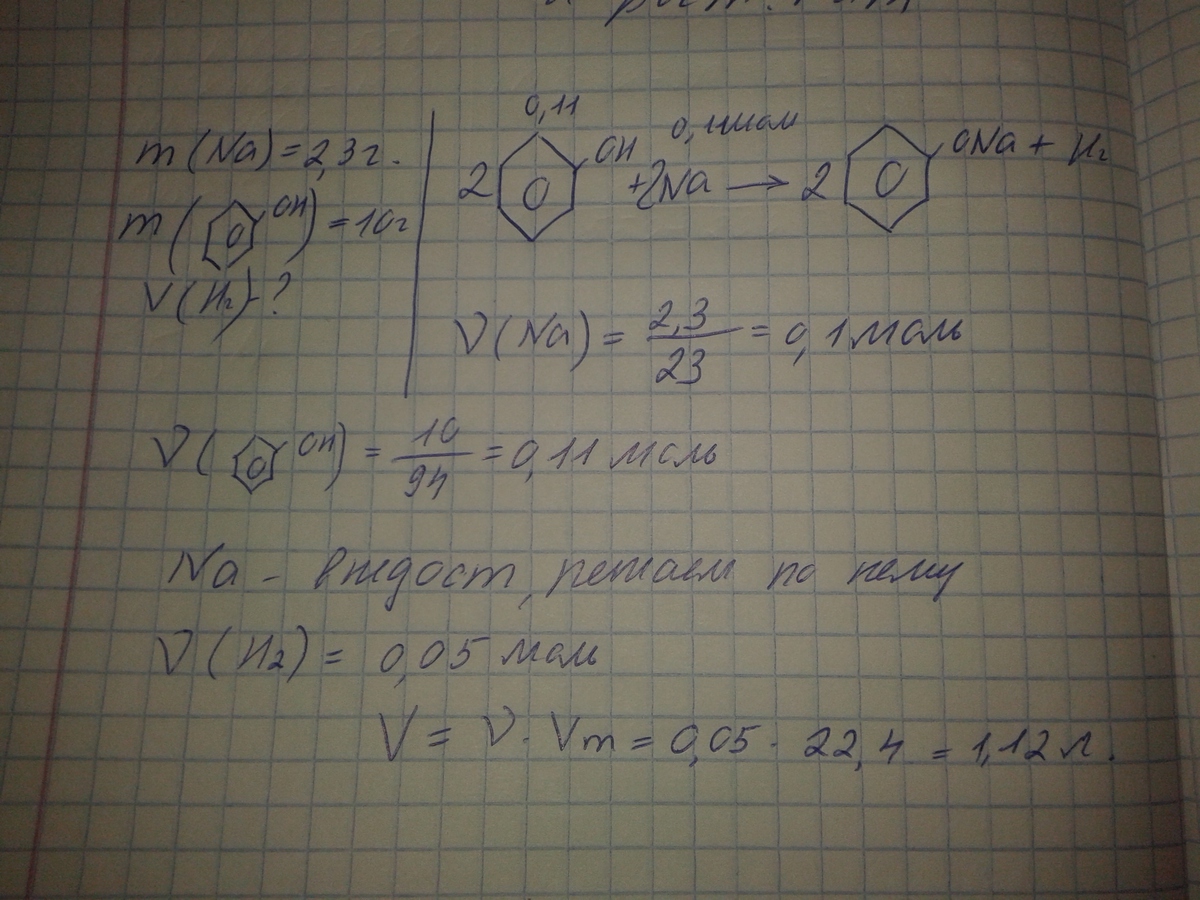 m(Na)=2,3г.
m( OH)=10г
V(H2)-?
0,11 0,1моль
2 OH +2Na → 2 ONa + H2
ν(Na) = 2,3/23 = 0,1 моль
ν( OH) = 10/94 = 0,11 моль
Na - в недост, решаем по нему
ν(H2) = 0,05 моль
V = ν · Vm = 0,05 · 22,4 = 1,12 л.